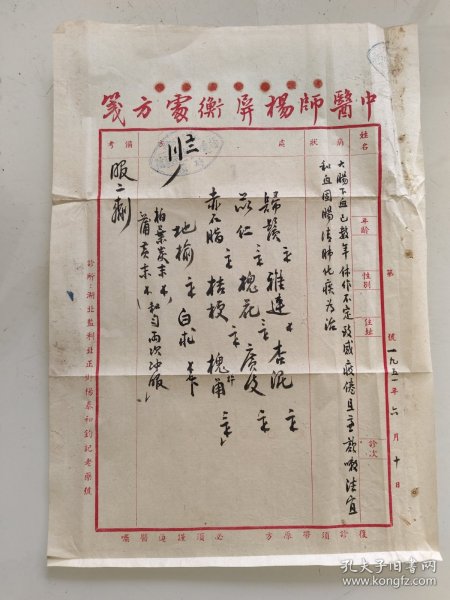 中醫師楊屏衡處方箋
姓名
年齡
性別
住址
診次
第 號
一九五一年六月十日
病狀
大腸下血已数年休作不定致感疲倦且主咳嗽法宜
和血固腸清肺化痰為治
處方
歸鬚 雅連 杏泥
苡仁 槐花 廣皮
赤石脂 桔梗 槐角
地榆 白朮
柏葉炭末
蒲黄末 和匀兩次沖服
備考
服二劑
復診須帶原方 必須謹遵醫囑
診所:湖北監利北正街楊泰和鈞記老藥號
孔夫子旧书网
www.kongfz.com